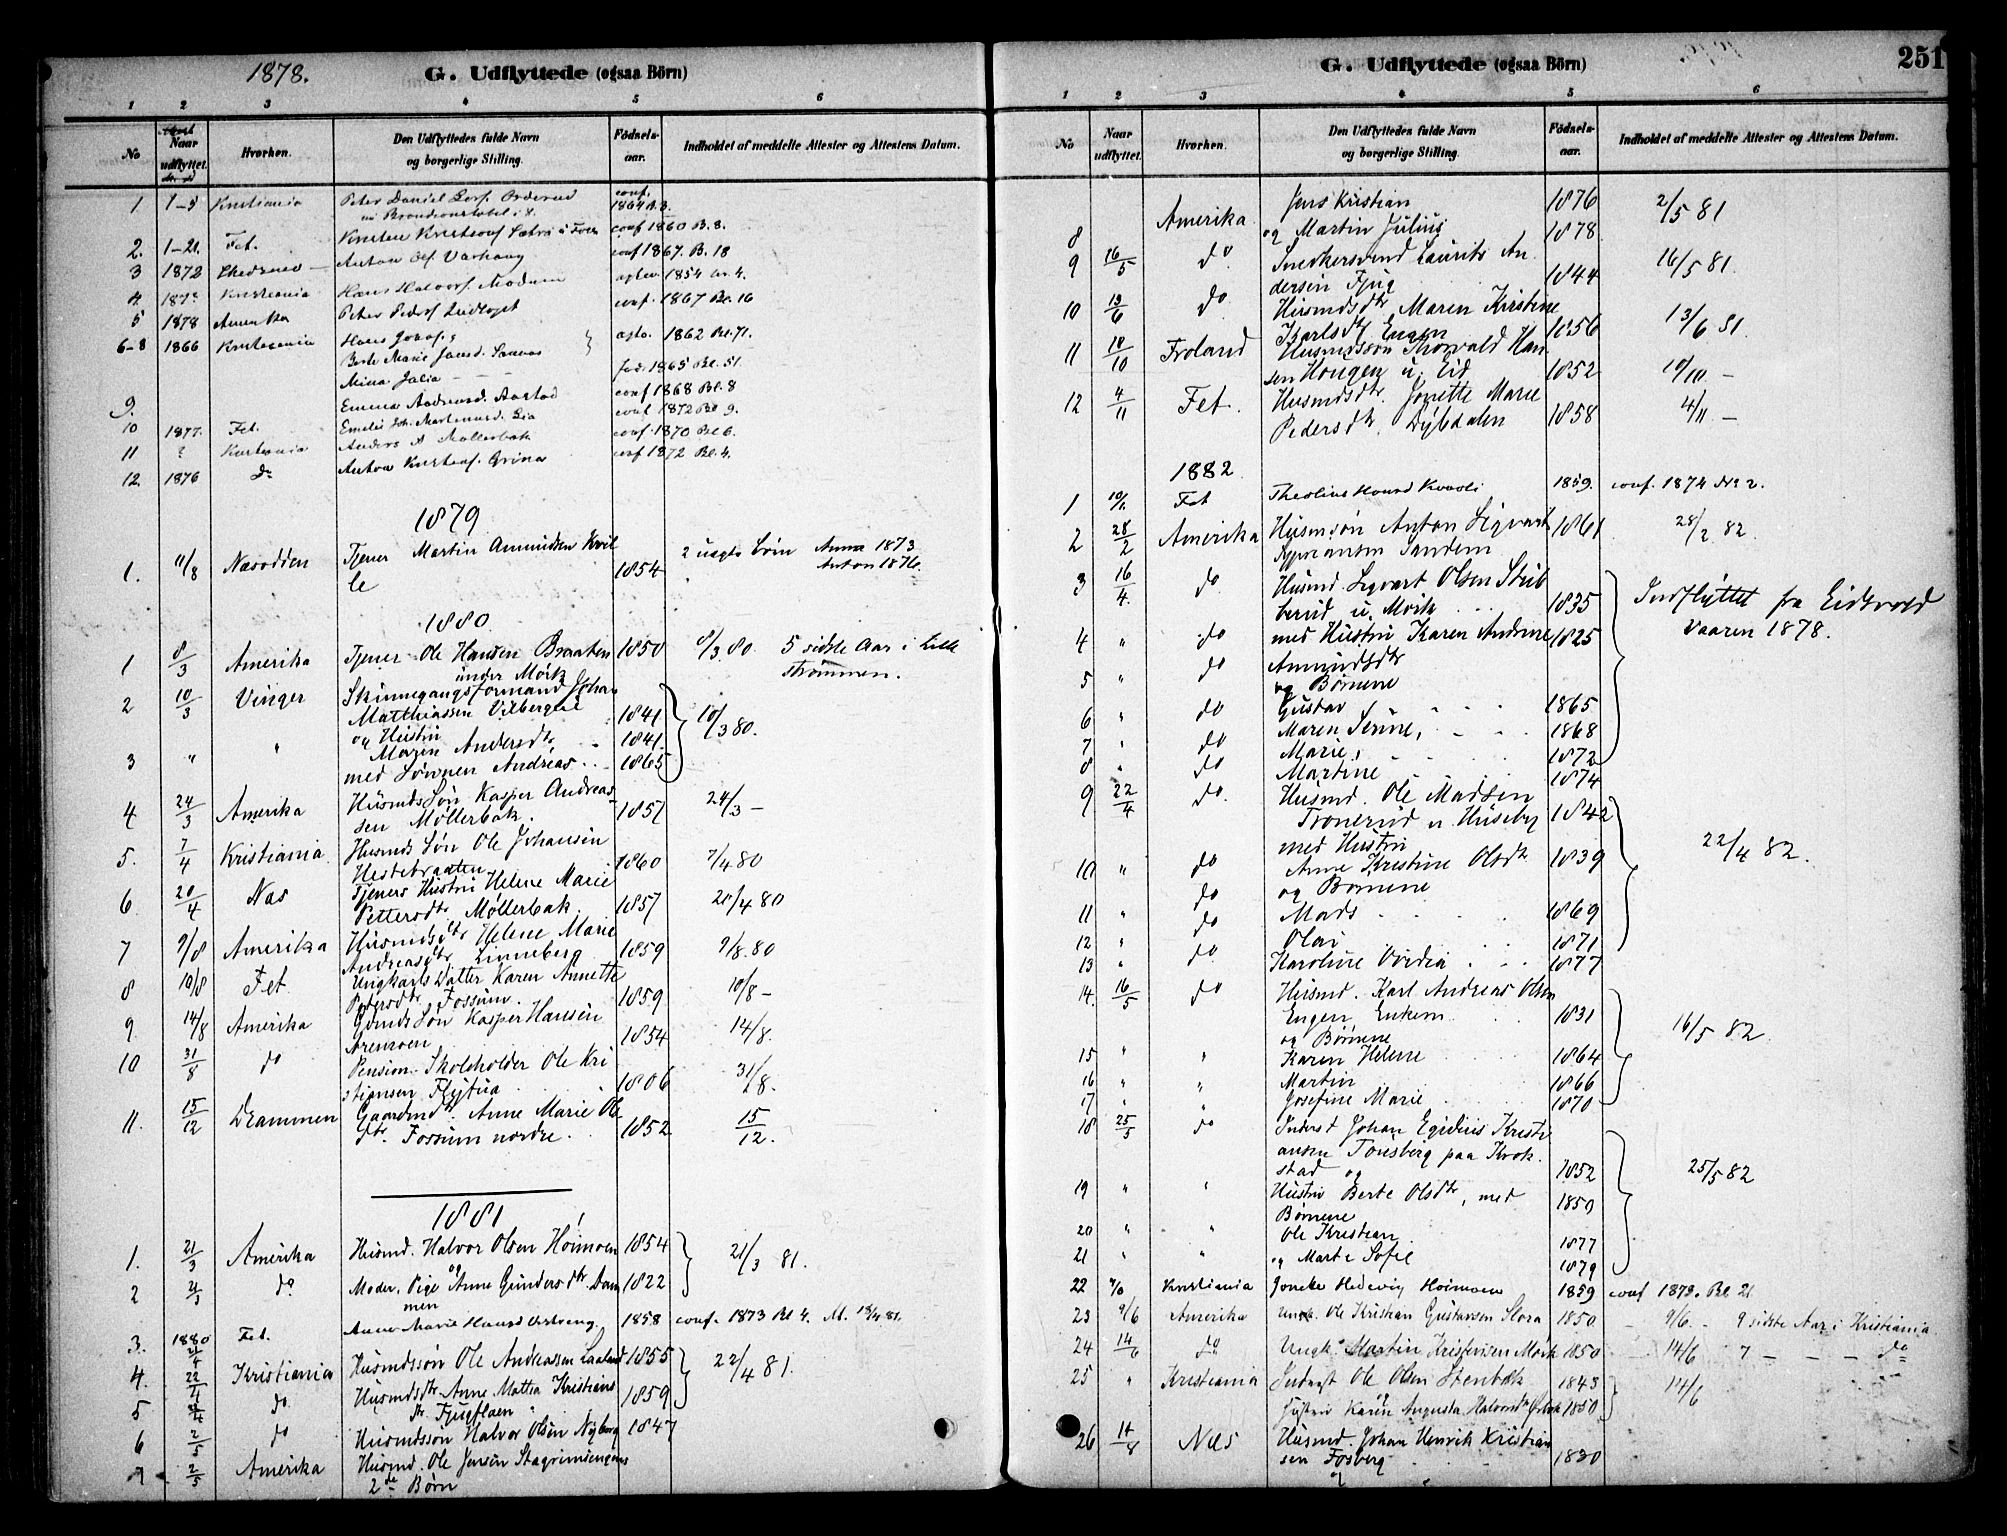 1878.
G. Udflyttede (ogsaa Börn)
1 2 3 4 5 6
No
Naar udflyttet.
Hvorhen.
Den Udflyttedes fulde Navn og borgerlige Stilling.
Födsels-aar.
Indholdet af meddelte Attester og Attestens Datum.
1 1-3 Kristiania Peter Daniel conf. 1864 B. 3.
2. 1-21. Fet. conf 1860 B. 8.
3 1872 Anton Olsf. Varhaug conf 1867. B. 18
4. Kristiania Hans Halvorsf. Modum 1854 nr. 4.
5 1878 Amerika Peter Pedersf. conf. 1867 Bl. 16
6-8 1866 Kristiania Hans 1862 Bl. 71.
Berte Marie
Mina Julia - - fød. 1865 Bl. 51.
9. Emma Andreasd. Aastad conf 1868 Bl. 8
10 1877. Fet. Emelie Joh. Martinusd. Lia conf. 1872 Bl 9.
11 ? Kristiania Anders A Møllerbak conf. 1870 Bl 6.
12. 1876 do Anton Kristenf. Grina conf 1872 Bl. 4.
1879
1. 11/8 Næsodden Tjener Martin Amundsen Kval
le 1854 2 uægte Børn Anna 1873
Anton 1876.
1880
1 8/3 Amerika Tjener Ole Hansen Braaten 1850 8/3. 80. 5 sidste Aar i Lille
under Mørk strømmen.
2 10/3 Vinger Skinnegangsformand Johan
Matthiassen Vilberget 1841 10/3 80.
og Hustru
" " Maren Andersdtr. 1841.
3 med Sønnen Andreas. . . 1865
4 24/3 Amerika Husmds Søn Kasper Andreas
sen Møllerbak. 1857 24/3 –
5. 7/4 Kristiania. Husmds Søn Ole Johansen
Hestebraaten 1860 7/4 80
6. 20/4 Næs Tjeners Hustru Helene Marie
Pettersdtr Møllerbak. 1857 20/4 80
7 9/8 Amerika Husmdsdtr Helene Marie
Andreasdtr Linneberg 1859 9/8. 80
8 10/8 Fet. Ungkarls Datter Karen Annette
Pedersdtr. Fossum. 1859 10/8 –
9 14/8 Amerika Gdmds Søn Kasper Hansen
Arenmoen 1854 14/8.
10 31/8 do Pension. Skoleholder Ole Kri
stiansen Fløjtua 1806 31/8.
11. 15/12 Drammen Gaardmdtr. Anne Marie Ols
dtr. Fossum nordre. 1852 15/12.
1881
1. 21/3 Amerika Husmd. Halvor Olsen Høimoen 1854 21/3 81.
og
2 21/3 do Moder, Pige Anne Gundersdtr. Dam 1822
men
3. 1880 Fet. Anne Marie 1858 conf. 1873 Bl 4.
4. 22/4 Kristiania Husmdssøn Ole Andreassen Laaland 1855 22/4 81.
5 do Husmdsdtr Anne Mathea Kristians
dtr. Tjugflaen 1859
6 2/5 do Husmdssøn Halvor Olsen Nyberg 1847
7 2/5 Amerika Husmd. Ole Jensen Stagrimsengens
2de Børn
G. Udflyttede (ogsaa Börn) 251
1 2 3 4 5 6
No
Naar udflyttet.
Hvorhen.
Den Udflyttedes fulde Navn og borgerlige Stilling.
Födsels-aar.
Indholdet af meddelte Attester og Attestens Datum.
Jens Kristian 1876 2/5 81
8 Amerika og Martin Julius 1878
9 16/5 do Snedkersvend Laurits An
dersen Tjug 1844 16/5 81.
10 13/6 do Husmdsdtr Maren Kirstine
Karlsdtr Engen 1856 13/6 81.
11 10/10 Froland Husmdssøn Thorvald Han
sen Haugen u. Eid 1852 10/10 –
12 4/11 Fet. Husmdsdtr. Jonette Marie
Pedersdtr. Dybdalen 1858 4/11 –
1882
1 Fet Theoline Hansd Kvasli 1859. conf. 1874 No 2.
2 28/2 Amerika Husmsøn Anton Sigvart 1861 28/2 82.
Syprensen Sandem
3 16/4. do Husmd. Sigvart Olsen Stub
berud u. Mork . . 1835 Indflyttet fra Eidsvold
4 " do med Hustru Karen Andrine 1825 Vaaren 1878.
do Amundsdtr
5 " og Børnene
6 " do Gustav . . . . 1865
7 " do Maren Serine, . . . 1868
8 " do Marie, . . . 1872
Martine 1874
9 22/4 do. Husmd. Ole Madsen
Tronerud u Huseby 1842
med Hustru
10 " do Anne Kristine Olsdtr 1839 22/4 82.
do og Børnene
11 " do Mads . . . . 1869
12 " Olai . . 1871
13 " do Karoline Ovidia . . . 1877
14. 16/5 do Husmd. Karl Andreas Olsen
Engen, Enkem. . . 1831
og Børnene 16/5 82.
15 " " Karen Helene . . 1864
16 " " Martin . . 1866
17 " " Josefine Marie . . 1870
18 25/5 do Inderst Johan Egidius Kristi
ansen Tonsberg paa Krok
stad og 1852 25/5 82
19 " " Hustru Berte Olsdtr, med 1850
Børnene
20 " " Ole Kristian 1877
21 " " og Marte Sofie 1879
22 Kristiania Hedevig Hoimoen 1859 conf 1873. Bl 21.
23 9/6 Amerika Ungk. Ole Kristian Gustavsen Slora 1850 - 9/6. - 9 sidste Aar i Kristiania.
24 14/6 do Ungk Martin Kristensen Mørk 1850 - 14/6 7 – – – do
25 " Kristiania Inderst Ole Olsen Stenbæk 1843 14/6
Hustru Karen Augusta Halvorsdtr 1850
26 14/8 Næs Husmd. Johan Henrik Kristian
sen Fosberg 1830
og